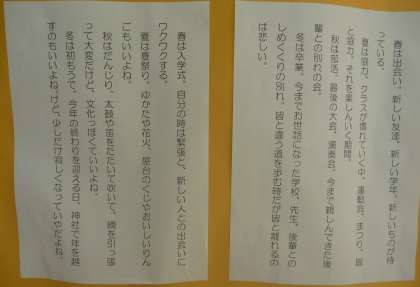 春は出会い。新しい友達、新しい学年。新しいものが待
っている。
夏は協力。クラスが慣れていく中、運動会、まつり、皆
と協力。それを楽しんいく期間。
秋は部活。最後の大会、演奏会。今まで親しんできた後
輩との別れの会。
冬は卒業。今までお世話になった学校、先生、後輩との
しめくくりの別れ。皆と違う道を歩む時だが皆と離れるの
は悲しい。
春は入学式。自分の時は緊張と、新しい人との出会いに
ワクワクする。
夏は夏祭り。ゆかたや花火、屋台のくじやおいしいりん
ごもいいよね。
秋はだんじり。太鼓や笛をたたいて吹いて、綱を引っ張
って大変だけど、文化っぽくていいよね。
冬は初もうで。今年の終わりを迎える日、神社で年を越
すのもいいよね。けど、少しだけ寂しくなっていやだよね。